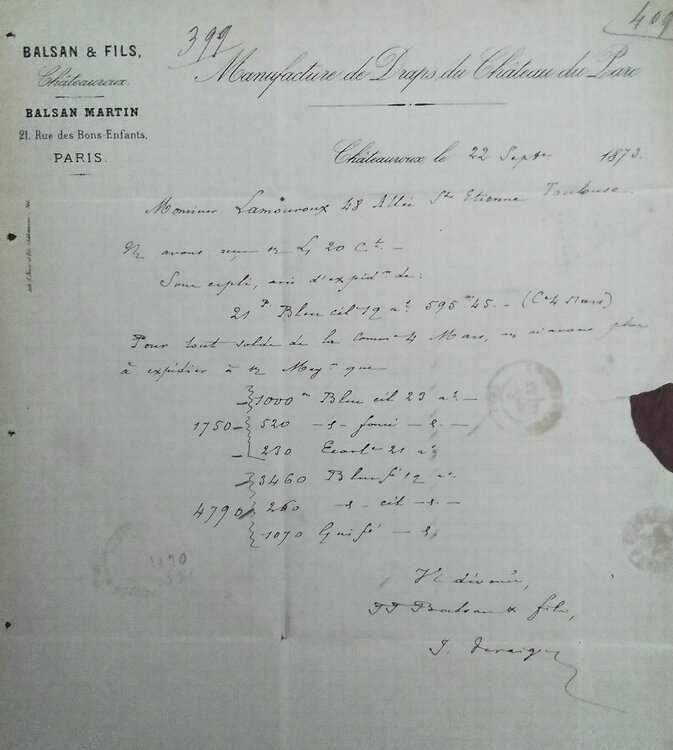 399
409
BALSAN & FILS,
Châteauroux.
BALSAN MARTIN
21, Rue des Bons-Enfants,
PARIS.
Manufacture de Draps du Château du Parc
Châteauroux le 22 Sept 1873.
Monsieur Lamouroux 48 Allée St Etienne Toulouse
avons 20 Ct. —
Sous copli, avis d'expédon de:
21 P. Bleu cel 19 595 m 45. — (Ce 4 Mars)
Pour tout solde de la Comme 4 Mars, n'avons plus
à expédier à que
1000 m Bleu cel 23 as —
1750 — 520 — d — foncé — d. —
230 Ecarte 21 as
3460 Bleu fé 19 as —
4790 260 — d — cel — d. —
1070 Gris fé — d.
Balsan & fils,